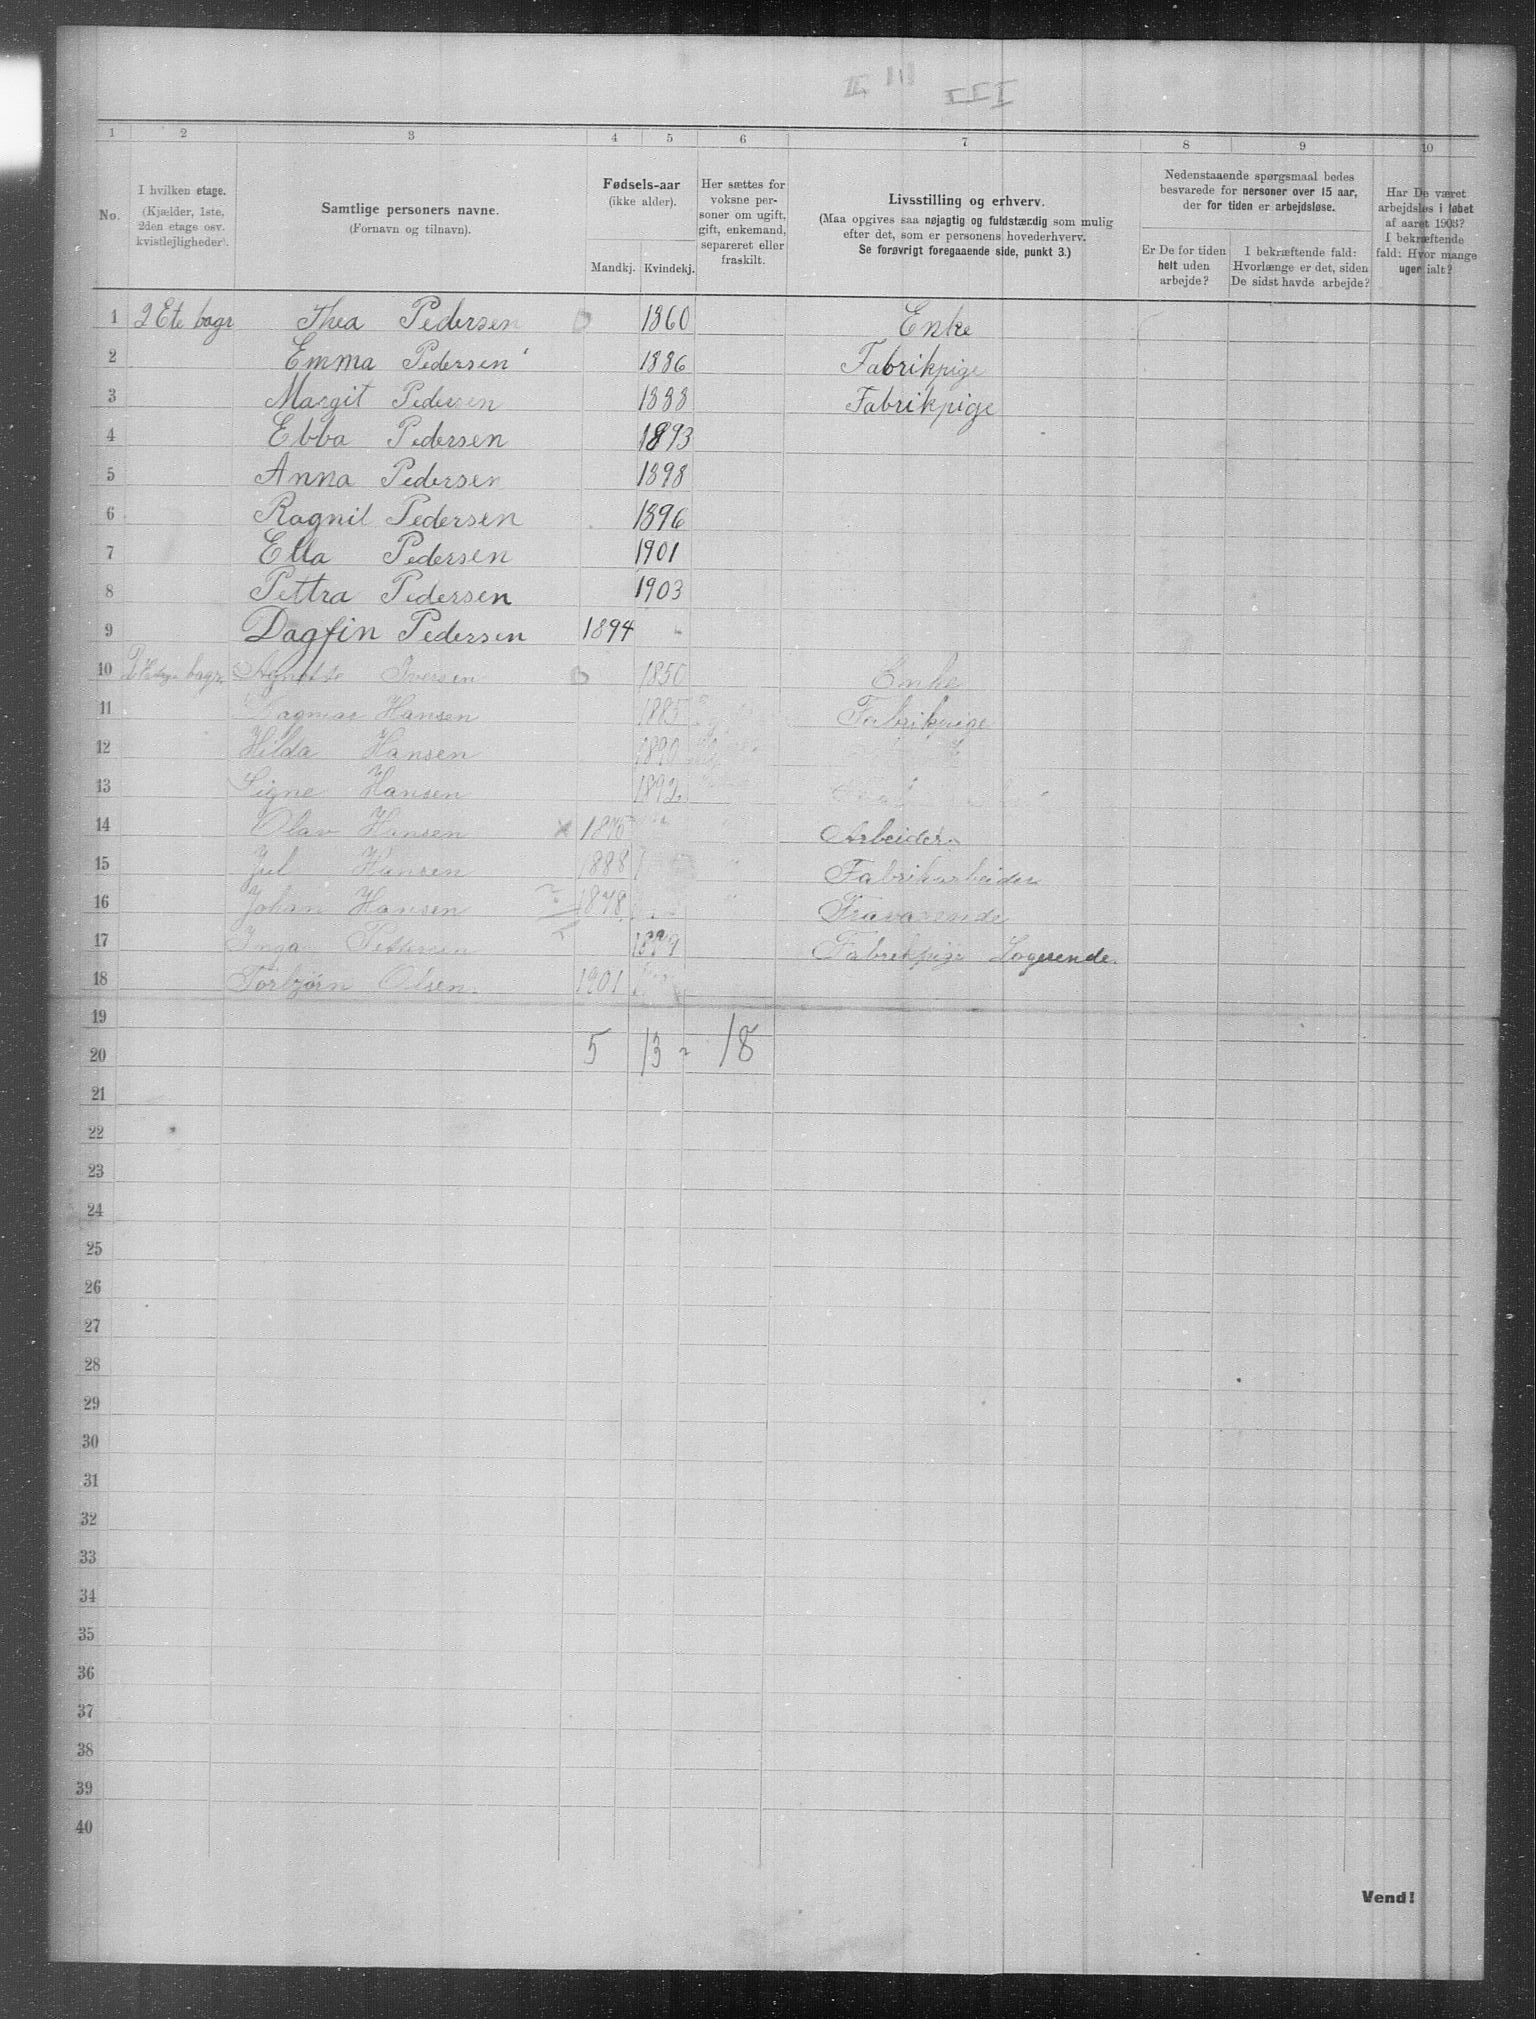 II III III
1 2 3 4 5 6 7 8 9 10
No.
I hvilken etage.
(Kjælder, 1ste,
2den etage osv.
kvistlejligheder).
Samtlige personers navne.
(Fornavn og tilnavn).
Fødsels-aar
(ikke alder).
Mandkj. Kvindekj.
Her sættes for
voksne per-
soner om ugift,
gift, enkemand,
separeret eller
fraskilt.
Livsstilling og erhverv.
(Maa opgives saa nøjagtig og fuldstændig som mulig
efter det, som er personens hovederhverv.
Se forøvrigt foregaaende side, punkt 3.)
Nedenstaaende spørgsmaal bedes
besvarede for personer over 15 aar,
der for tiden er arbejdsløse.
Er De for tiden
helt uden
arbejde?
I bekræftende fald:
Hvorlænge er det, siden
De sidst havde arbejde?
Har De været
arbejdsløs i løbet
af aaret 1903?
I bekræftende
fald: Hvor mange
uger ialt?
1 2 Ete bagr Thea Pedersen 1860 Enke
2 Emma Pedersen 1886 Fabrikpige
3 Margit Pedersen 1888 Fabrikpige
4 Ebba Pedersen 1893
5 Anna Pedersen 1898
6 Ragnil Pedersen 1896
7 Ella Pedersen 1901
8 Pettra Pedersen 1903
9 Dagfin Pedersen 1894
10 bagr. Iversen 1850 Enke
11 Dagmar Hansen 1885 Fabrikpige
12 Hilda Hansen 1890
13 Signe Hansen 1892
14 Olav Hansen x Arbeider
15 Jul Hansen 1888 Fabrikarbeider
16 Johan Hansen 1878 Fraværende
17 Inga Pettersen Fabrikpige Logerende
18 Torbjørn Olsen. 1901
19
20 5 13 18
21
22
23
24
25
26
27
28
29
30
31
32
33
34
35
36
37
38
39
40
Vend!